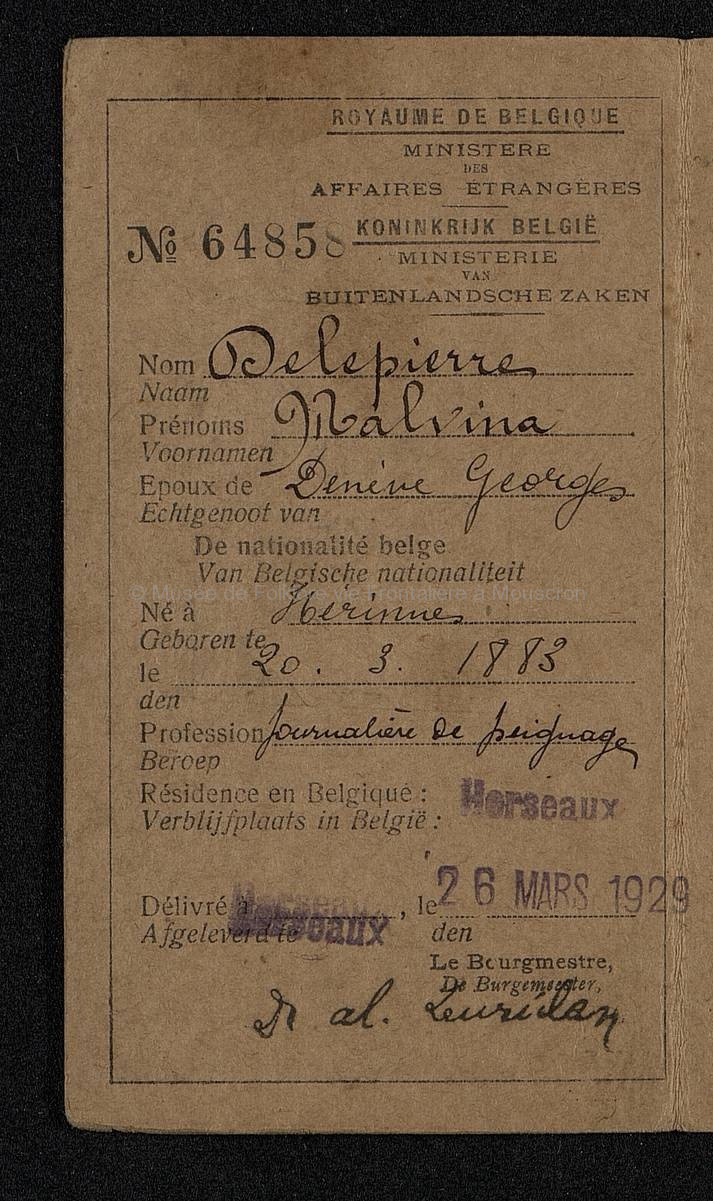 ROYAUME DE BELGIQUE
MINISTERE
DES
AFFAIRES ÉTRANGÈRES
KONINKRIJK BELGIË
№ 64858
MINISTERIE
VAN
BUITENLANDSCHE ZAKEN
Nom Delepierre
Naam
Prénoms Malvina
Voornamen
Epoux de Denève Georges
Echtgenoot van
De nationalité belge
Van Belgische nationaliteit
© Musée de Folklore vie Frontalière à Mouscron
Né à Hérinnes
Geboren te
le 20. 3. 1883
den
Profession Journalière de peignage
Beroep
Résidence en Belgique : Herseaux
Verblijfplaats in België :
Délivré à Herseaux, le 26 MARS 1929
Afgeleverd te Herseaux den
Le Bourgmestre,
De Burgemeester,